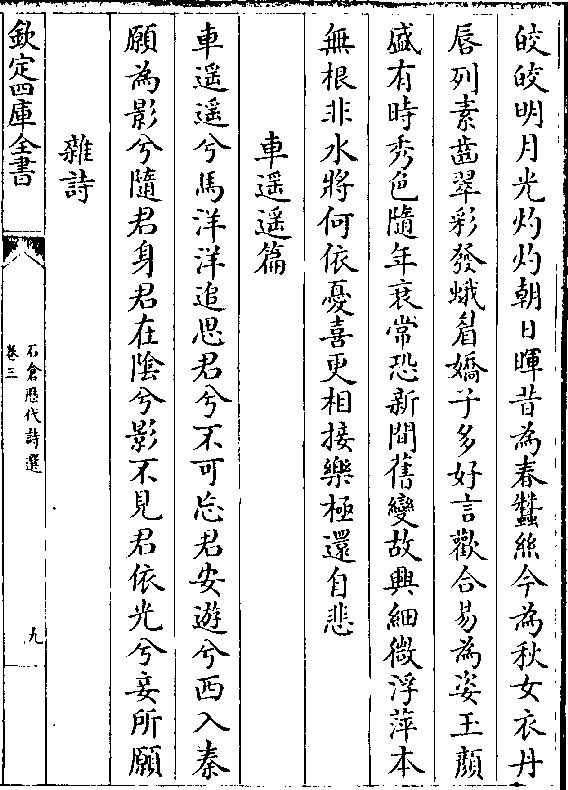 皎皎明月光灼灼朝日暉昔為春蠶絲今為秋女衣丹
唇列素齒翠彩發蛾眉嬌子多好言歡合易為姿玉顏
盛有時秀色隨年衰常恐新間舊變故興細微浮萍本
無根非水將何依憂喜更相接樂極還自悲
車遥遥篇
車遥遥兮馬洋洋追思君兮不可忘君安遊兮西入秦
願為影兮隨君身君在陰兮影不見君依光兮妾所願
雜詩
欽定四庫全書
石倉歴代詩選
卷三
九